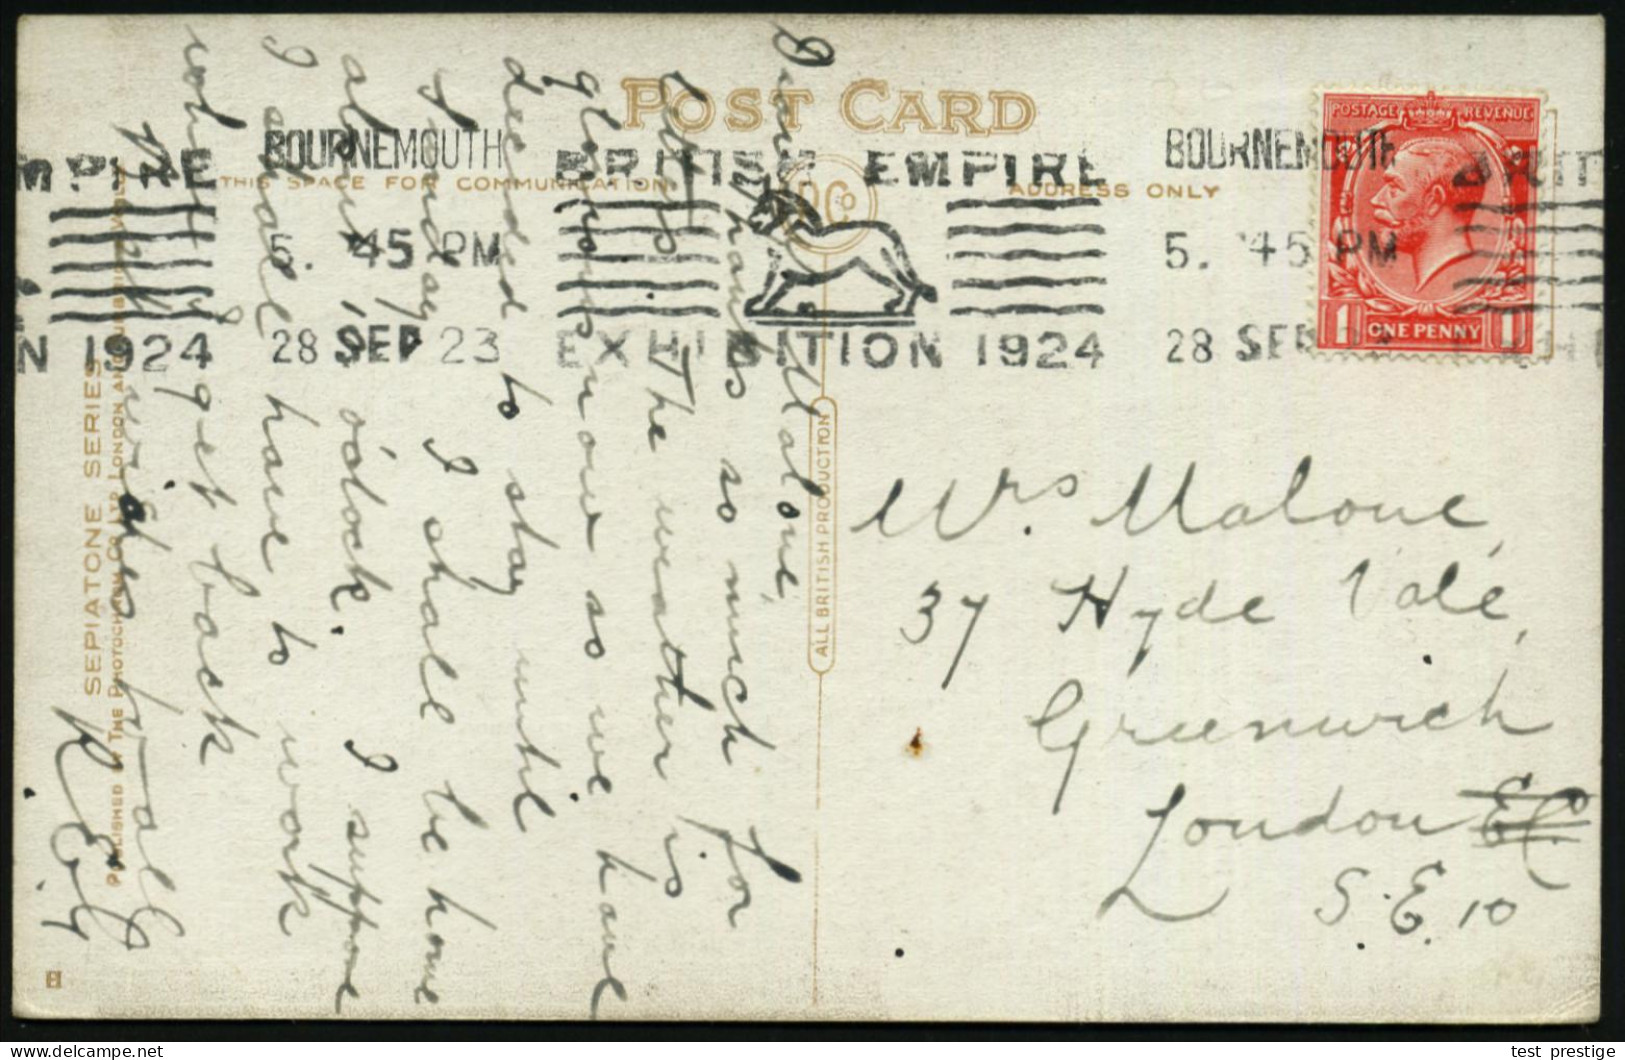 POST CARD
THIS SPACE FOR COMMUNICATION
ADDRESS ONLY
POSTAGE REVENUE
1 ONE PENNY 1
BOURNEMOUTH
5. 45 PM
28 SEP 23
BRITISH EMPIRE
EXHIBITION 1924
BOURNEMOUTH
5. 45 PM
28 SEP
MPIRE
N 1924
BRIT
Dear Mrs Malone,
Thanks so much for
letters The weather is
glorious now so we have
decided to stay until
Sunday I shall be home
about 1 o'clock. I suppose
I shall have to work
when I get back
With wishes to all
R. E. G.
ALL BRITISH PRODUCTION
SEPIATONE SERIES
PUBLISHED BY THE PHOTOCHROM CO LTD LONDON AND
Mrs Malone,
37 Hyde Vale,
Greenwich
London EC
S.E. 10
test prestige